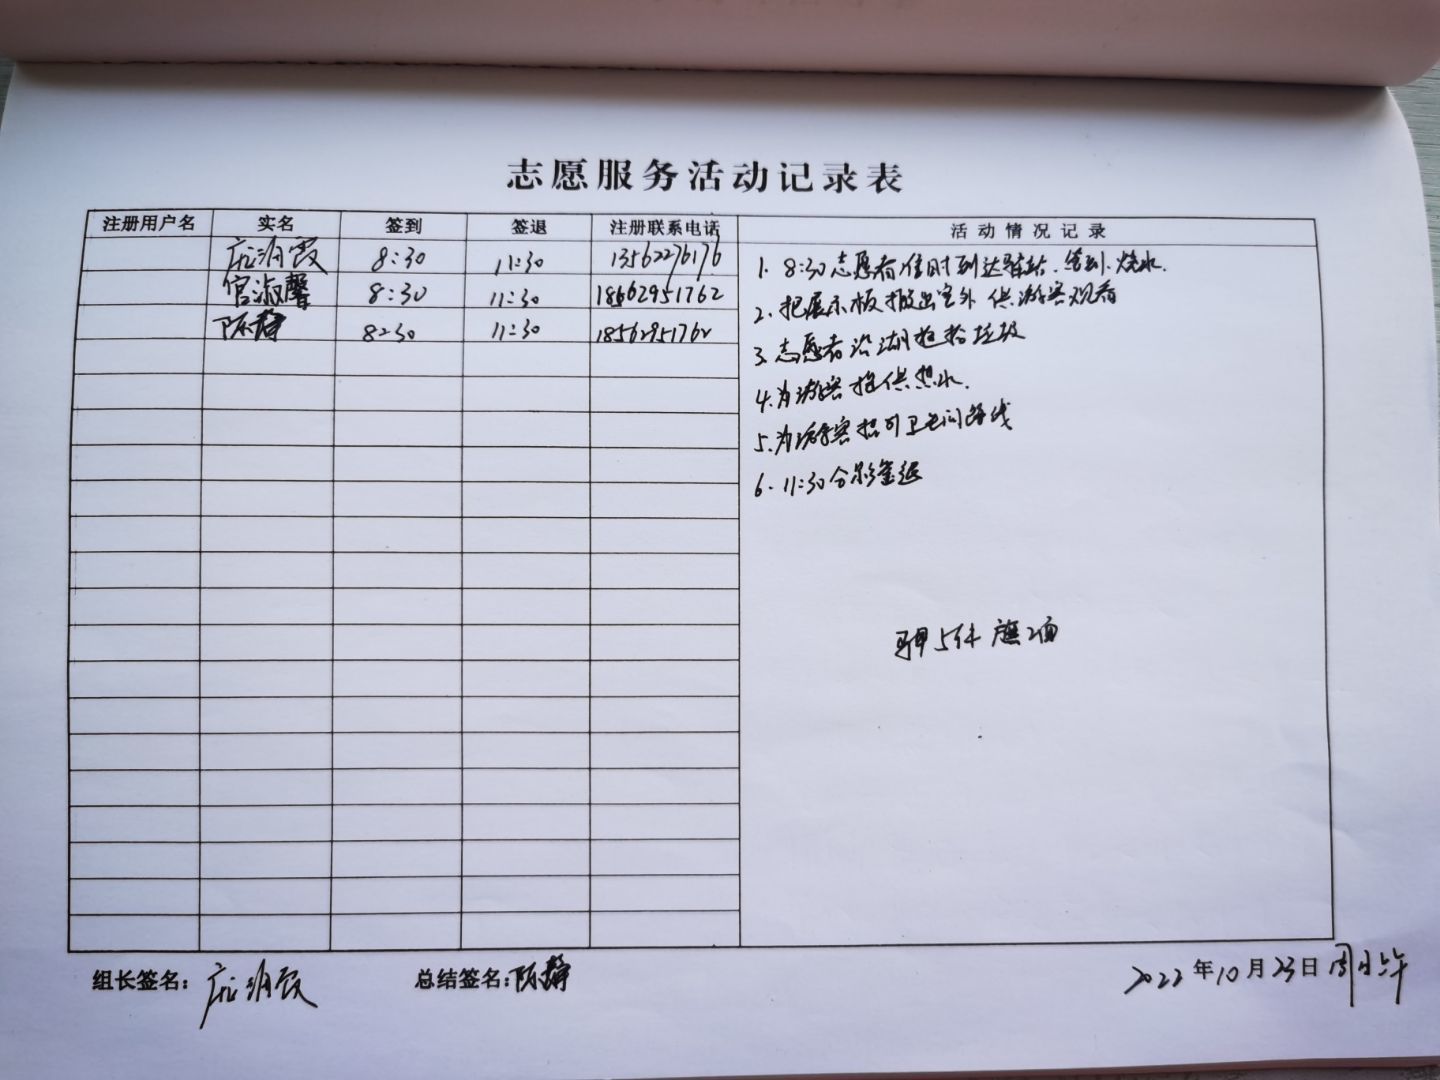 志愿服务活动记录表
注册用户名 实名 签到 签退 注册联系电话 活动情况记录
霞 8:30 11:30 13562276176
官淑馨 8:30 11:30 18562951762
陈静 8:30 11:30 18562951762
1. 8:30志愿者准时到达驿站.签到.烧水.
2. 把展示板搬出室外 供游客观看
3. 志愿者沿湖捡拾垃圾
4. 为游客提供热水.
5. 为游客指引卫生间路线
6. 11:30合影签退
5件 旗2面
组长签名: 总结签名: 陈静
2022年10月23日周日上午